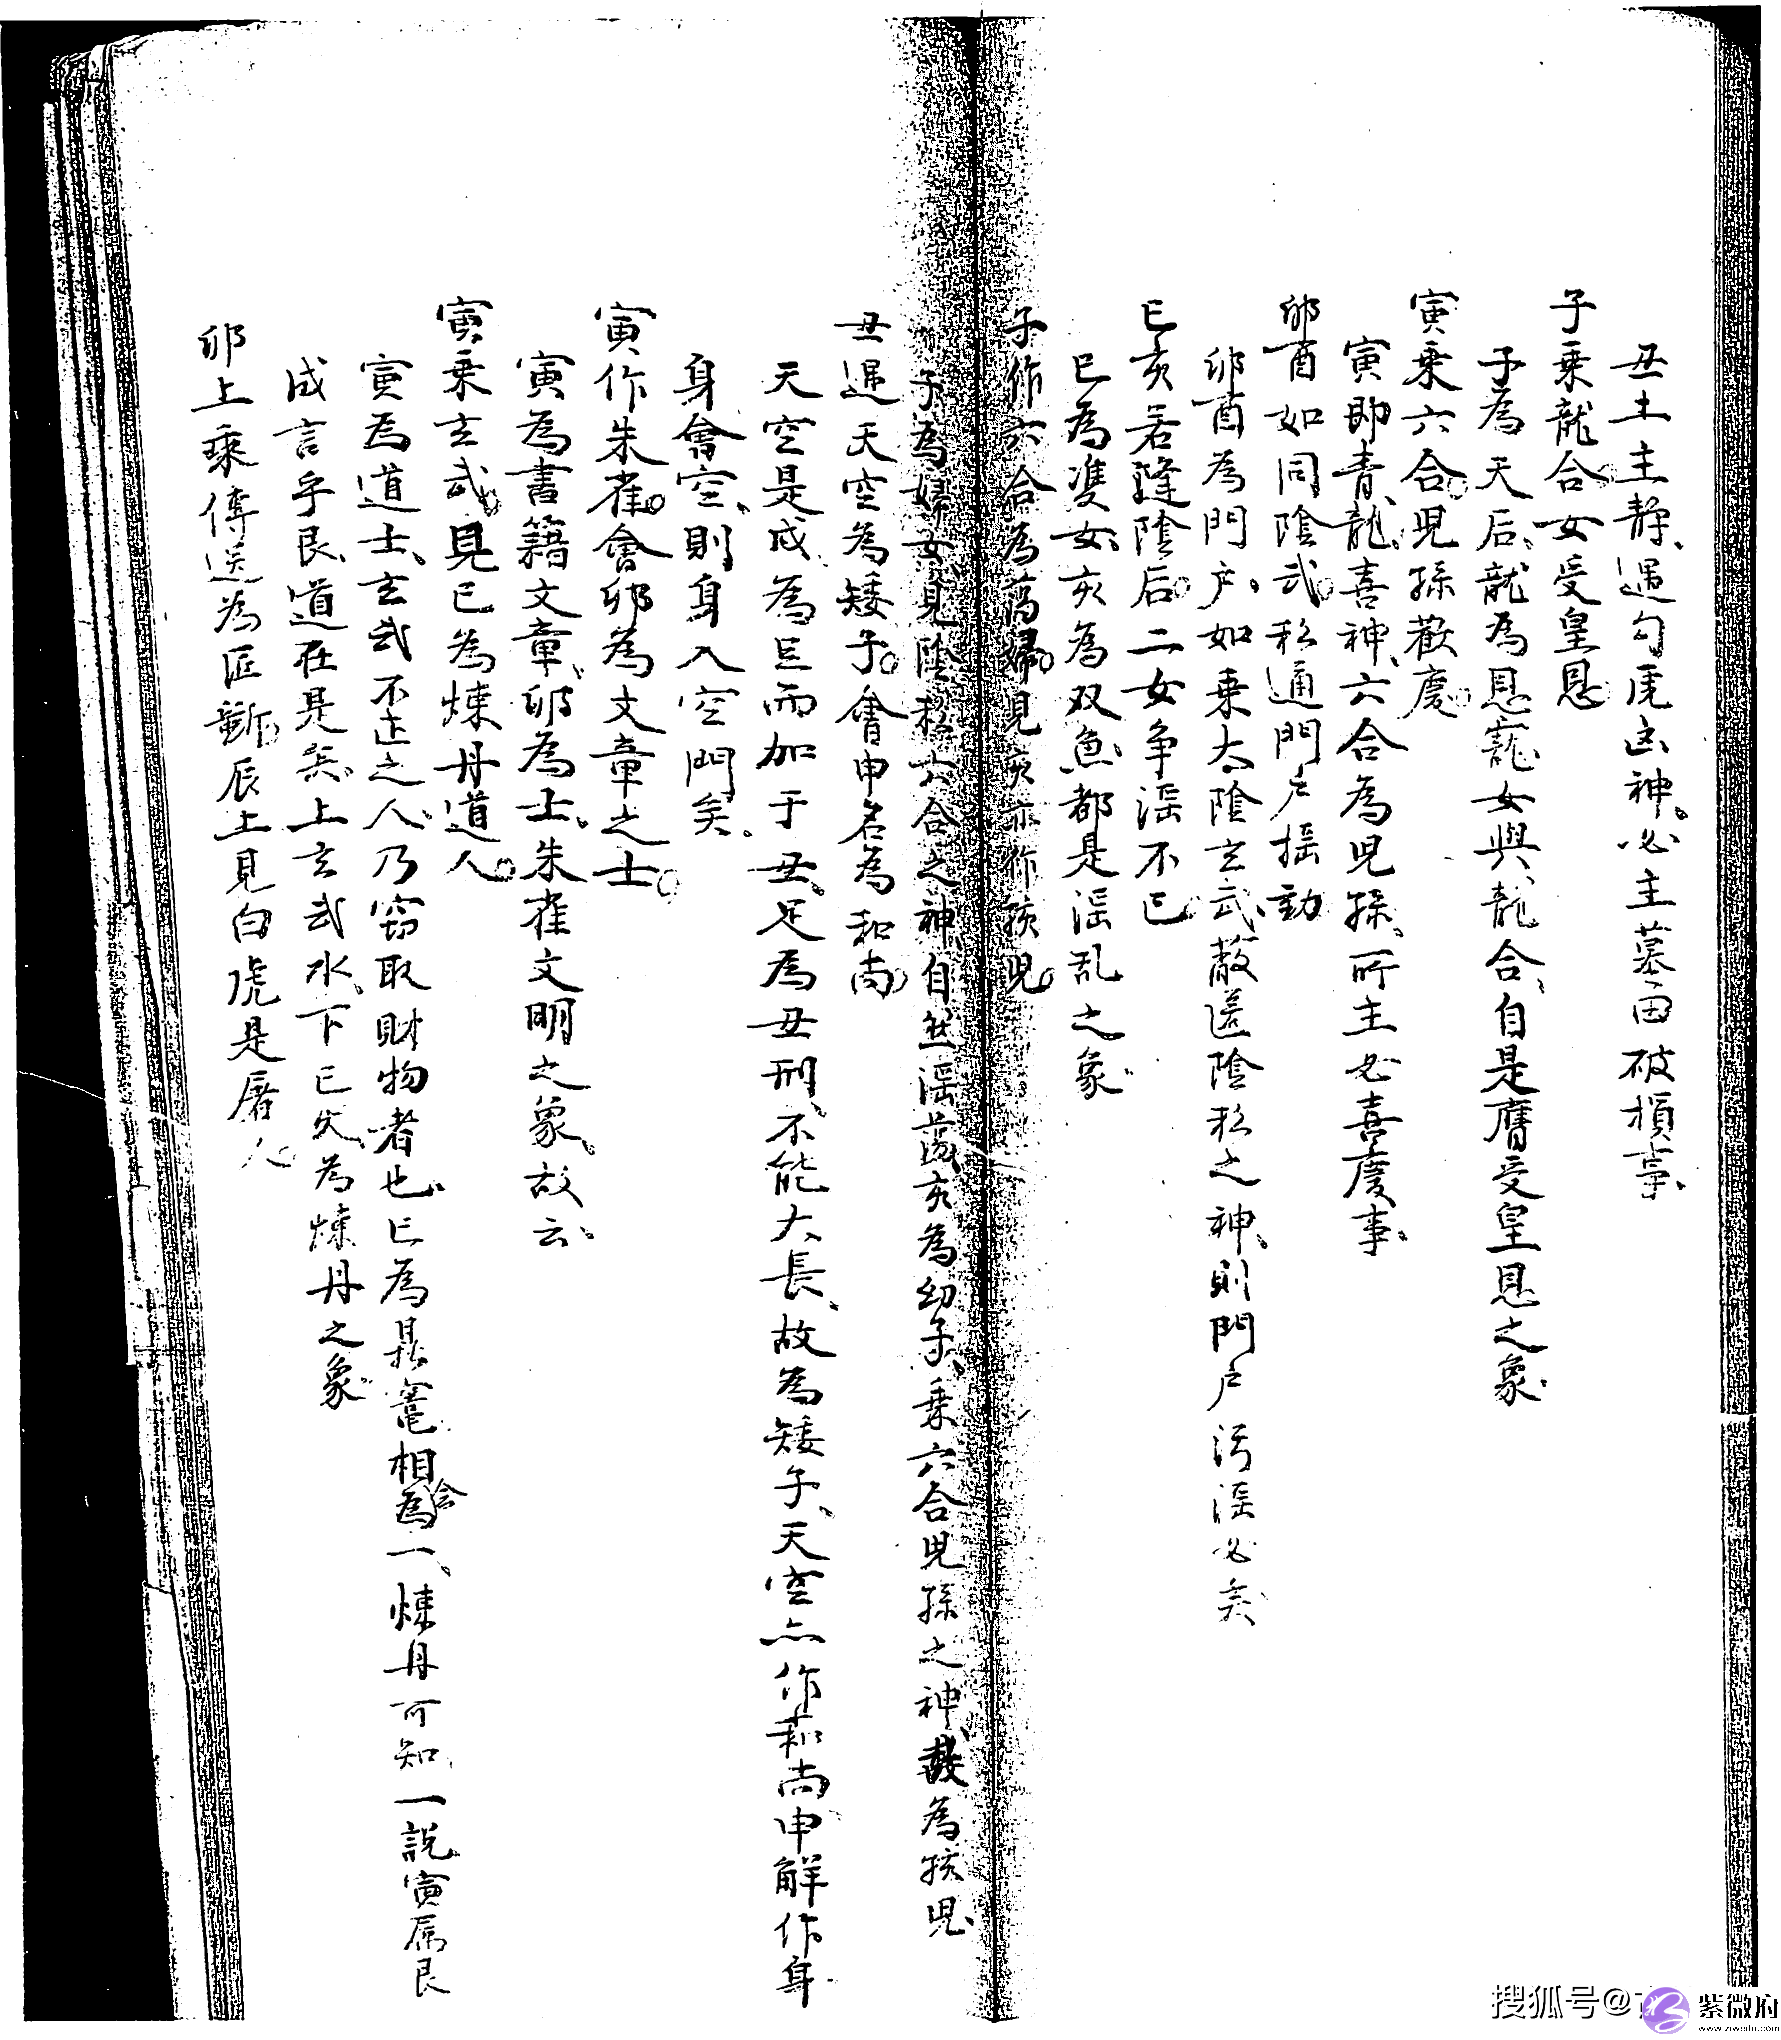 丑土主靜、遇勾虎凶神。必主墓田破損事、
子乘龍合。女受皇恩
子為天后、龍為恩寵、女與龍合、自是膺受皇恩之象。
寅乘六合。兒孫歡慶。
寅即青龍、喜神、六合為兒孫、所主必喜慶事。
卯酉如同陰武。私通門户摇動
卯酉為門户、如乘太陰玄武、蔽匿陰私之神、則門户污淫必矣、
巳亥若逢陰后。二女争淫不已。
巳為雙女、亥為双魚、都是淫乱之象。
子作六合為蕩婦。見亥亦作孩兒。
子為婦女、見陰私六合之神、自然淫蕩、亥為幼子、乘六合兒孫之神、故為孩兒、
丑遇天空為矮子。會申名為和尚。
天空是戌、為巨而加于丑、足為丑刑、不能大長、故為矮子、天空亦作和尚申解作身
身會空、則身入空門矣。
寅作朱雀。會卯為文章之士。
寅為書籍文章、卯為士、朱雀文明之象、故云、
寅乘玄武。見巳為煉丹道人。
寅為道士、玄武不正之人、乃窃取財物者也、巳為鼎竃、相会為一、煉丹可知、一說寅属艮
成言乎艮、道在是矣、上玄武水、下巳火、為煉丹之象。
卯上乘傳送為匠斷。辰上見白虎是屠人。
搜狐号@
紫微府
www.ziweifu.com